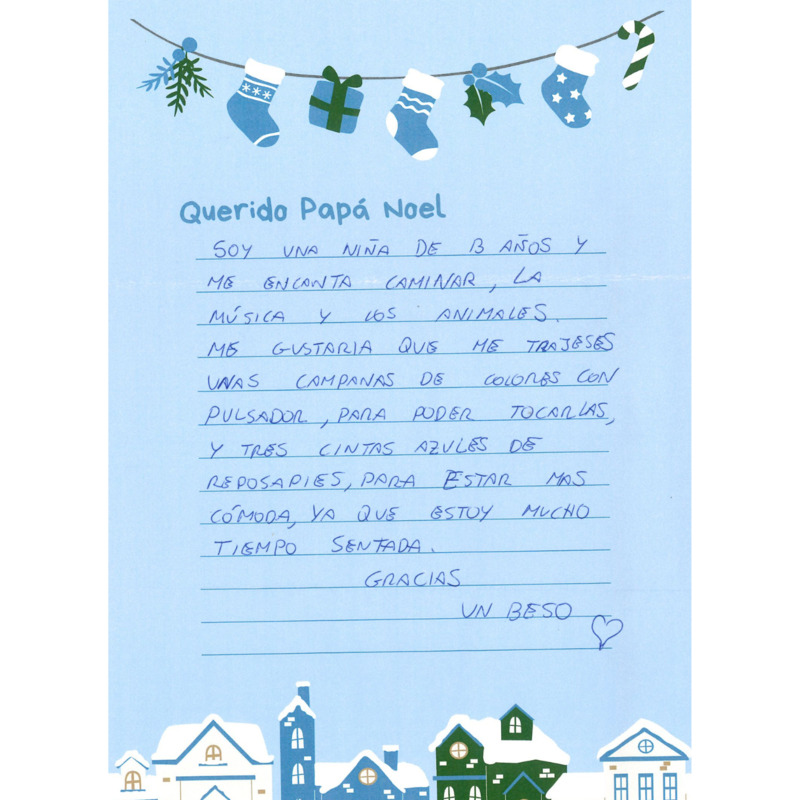 Querido Papá Noel
SOY UNA NIÑA DE 13 AÑOS Y
ME ENCANTA CAMINAR, LA
MÚSICA Y LOS ANIMALES.
ME GUSTARIA QUE ME TRAJESES
UNAS CAMPANAS DE COLORES CON
PULSADOR, PARA PODER TOCARLAS,
Y TRES CINTAS AZULES DE
REPOSAPIES, PARA ESTAR MAS
CÓMODA, YA QUE ESTOY MUCHO
TIEMPO SENTADA.
GRACIAS
UN BESO